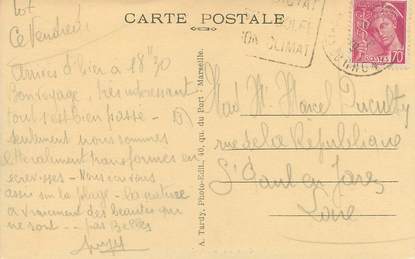 CARTE POSTALE
Ce Vendredi
Arrivés d'hier à 18h30
Bon voyage, très intéressant
tout s'est bien passé -
seulement nous sommes
littéralement transformés en
écrevisses - Nous écrivons
assis sur la plage - la nature
a vraiment des beautés qui
ne sont -- pas belles
A. Tardy, Photo-Edit., 40, qu. du Port : Marseille.
CLIMAT
POSTES 70
Mad. M. Marcel
rue de la République
St Paul en Jarez
Loire